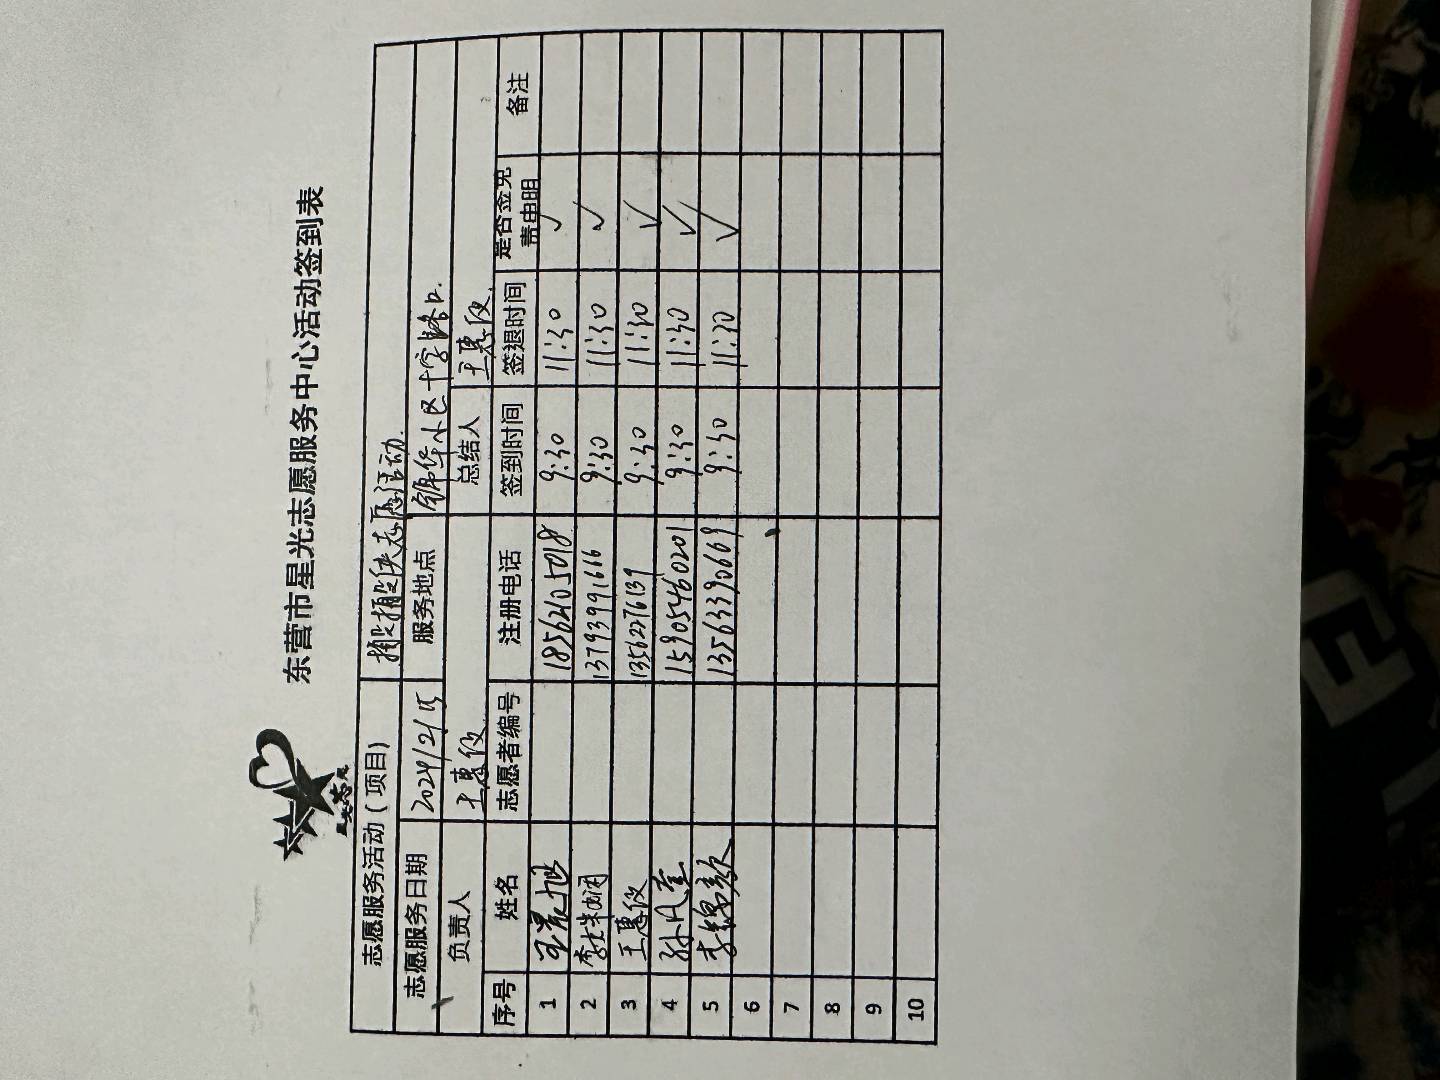 东营市星光志愿服务中心活动签到表
志愿服务活动（项目） 志愿活动.
志愿服务日期 2024/2/15 服务地点 锦华小区十字路口.
负责人 王惠 总结人 王惠
序号 姓名 志愿者编号 注册电话 签到时间 签退时间 是否签免责申明 备注
1 18562105018 9:30 11:30 ✓
2 13793991666 9:30 11:30 ✓
3 王惠 13562276139 9:30 11:30 ✓
4 孙 15905460201 9:30 11:30 ✓
5 李 13563390669 9:30 11:30 ✓
6
7
8
9
10